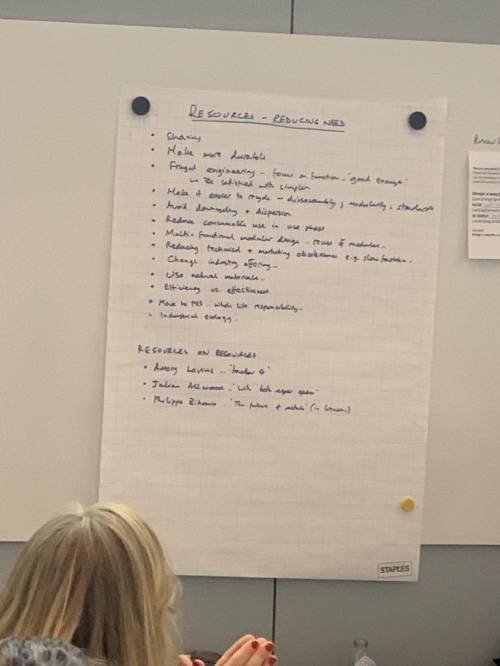 RESOURCES - REDUCING NEED
• Sharing
• Make more durable
• Frugal engineering - focus on function - "good enough"
↳ Be satisfied with simpler
• Make it easier to recycle - disassembly, modularity, standards
• Avoid downcycling + dispersion
• Reduce consumable use in use phase
• Multi-functional modular design - reuse of modules.
• Reducing technical + marketing obsolescence e.g. slow fashion.
• Change industry offering.
• Use natural materials.
• Efficiency vs. effectiveness
• Move to PSS - whole life responsibility.
• Industrial ecology.
RESOURCES ON RESOURCES
• Amory Lovins .. "Factor 4"
• Julian Allwood .. "With both eyes open"
• Philippe Bihouix .. "The future of metals" (in
STAPLES